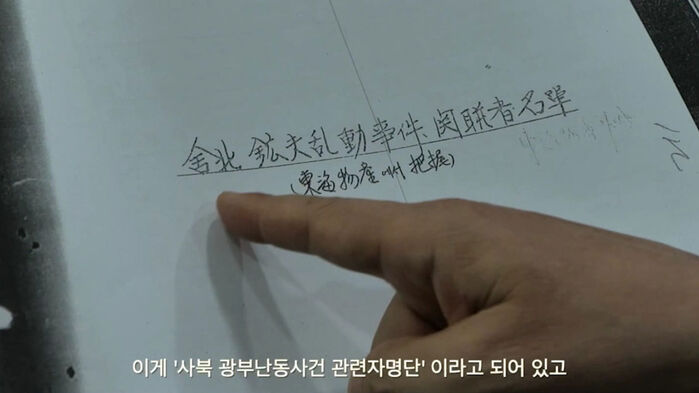 舍北 鉱夫乱動事件 関联者名単
(東海物産에서 把握)
이게 '사북 광부난동사건 관련자명단' 이라고 되어 있고